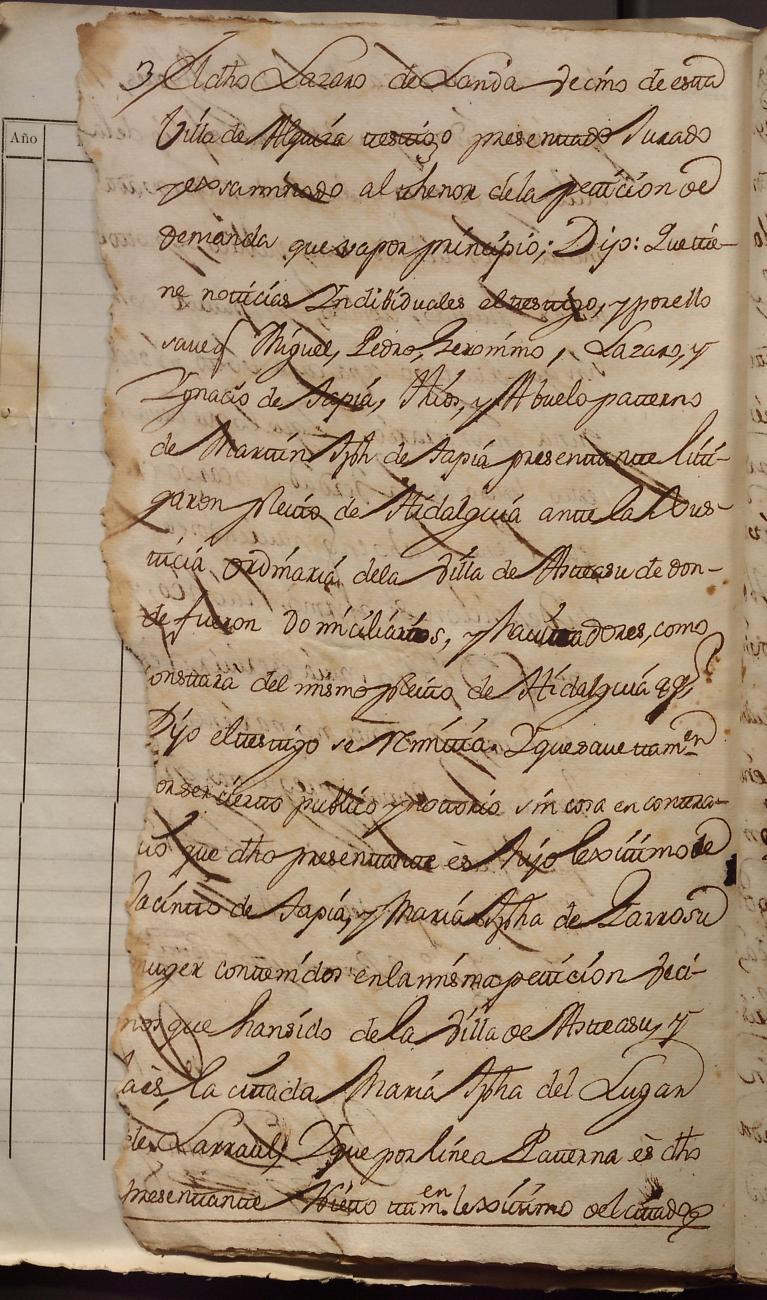 Año
3 El dho Lazaro de Landa vecino de esta
Villa de Alquiza testigo presentado Jurado
y exsaminado al thenor dela peticion de
demanda que va por principio; Dijo: Que tie-
ne noticias Yndibiduales el testigo, y por ello
save q Miguel, Pedro, Geronimo, Lazaro, y
Ygnacio de Tapia, thios, y Abuelo paterno
de Martin Jph de Tapia presentante liti-
garon pleito de Hidalguia ante la Jus-
ticia ordinaria dela Villa de Asteasu de don-
de fueron Domiciliarios, y havitadores, como
constara del mismo pleito de Hidalguia aq
Dijo el testigo se remitia. Y que save tamen
por ser cierto publico y notorio sin cosa en contra-
rio que dho presentante es hijo lexitimo de
Jacinto de Tapia, y Maria Jpha de Larrosu
muger contenidos en la misma peticion veci-
nos que han sido de la Villa de Asteasu, y
la citada Maria Jpha del Lugar
de Larraul; Y que por linea Paterna es dho
presentante Nieto tamen lexitimo del citado